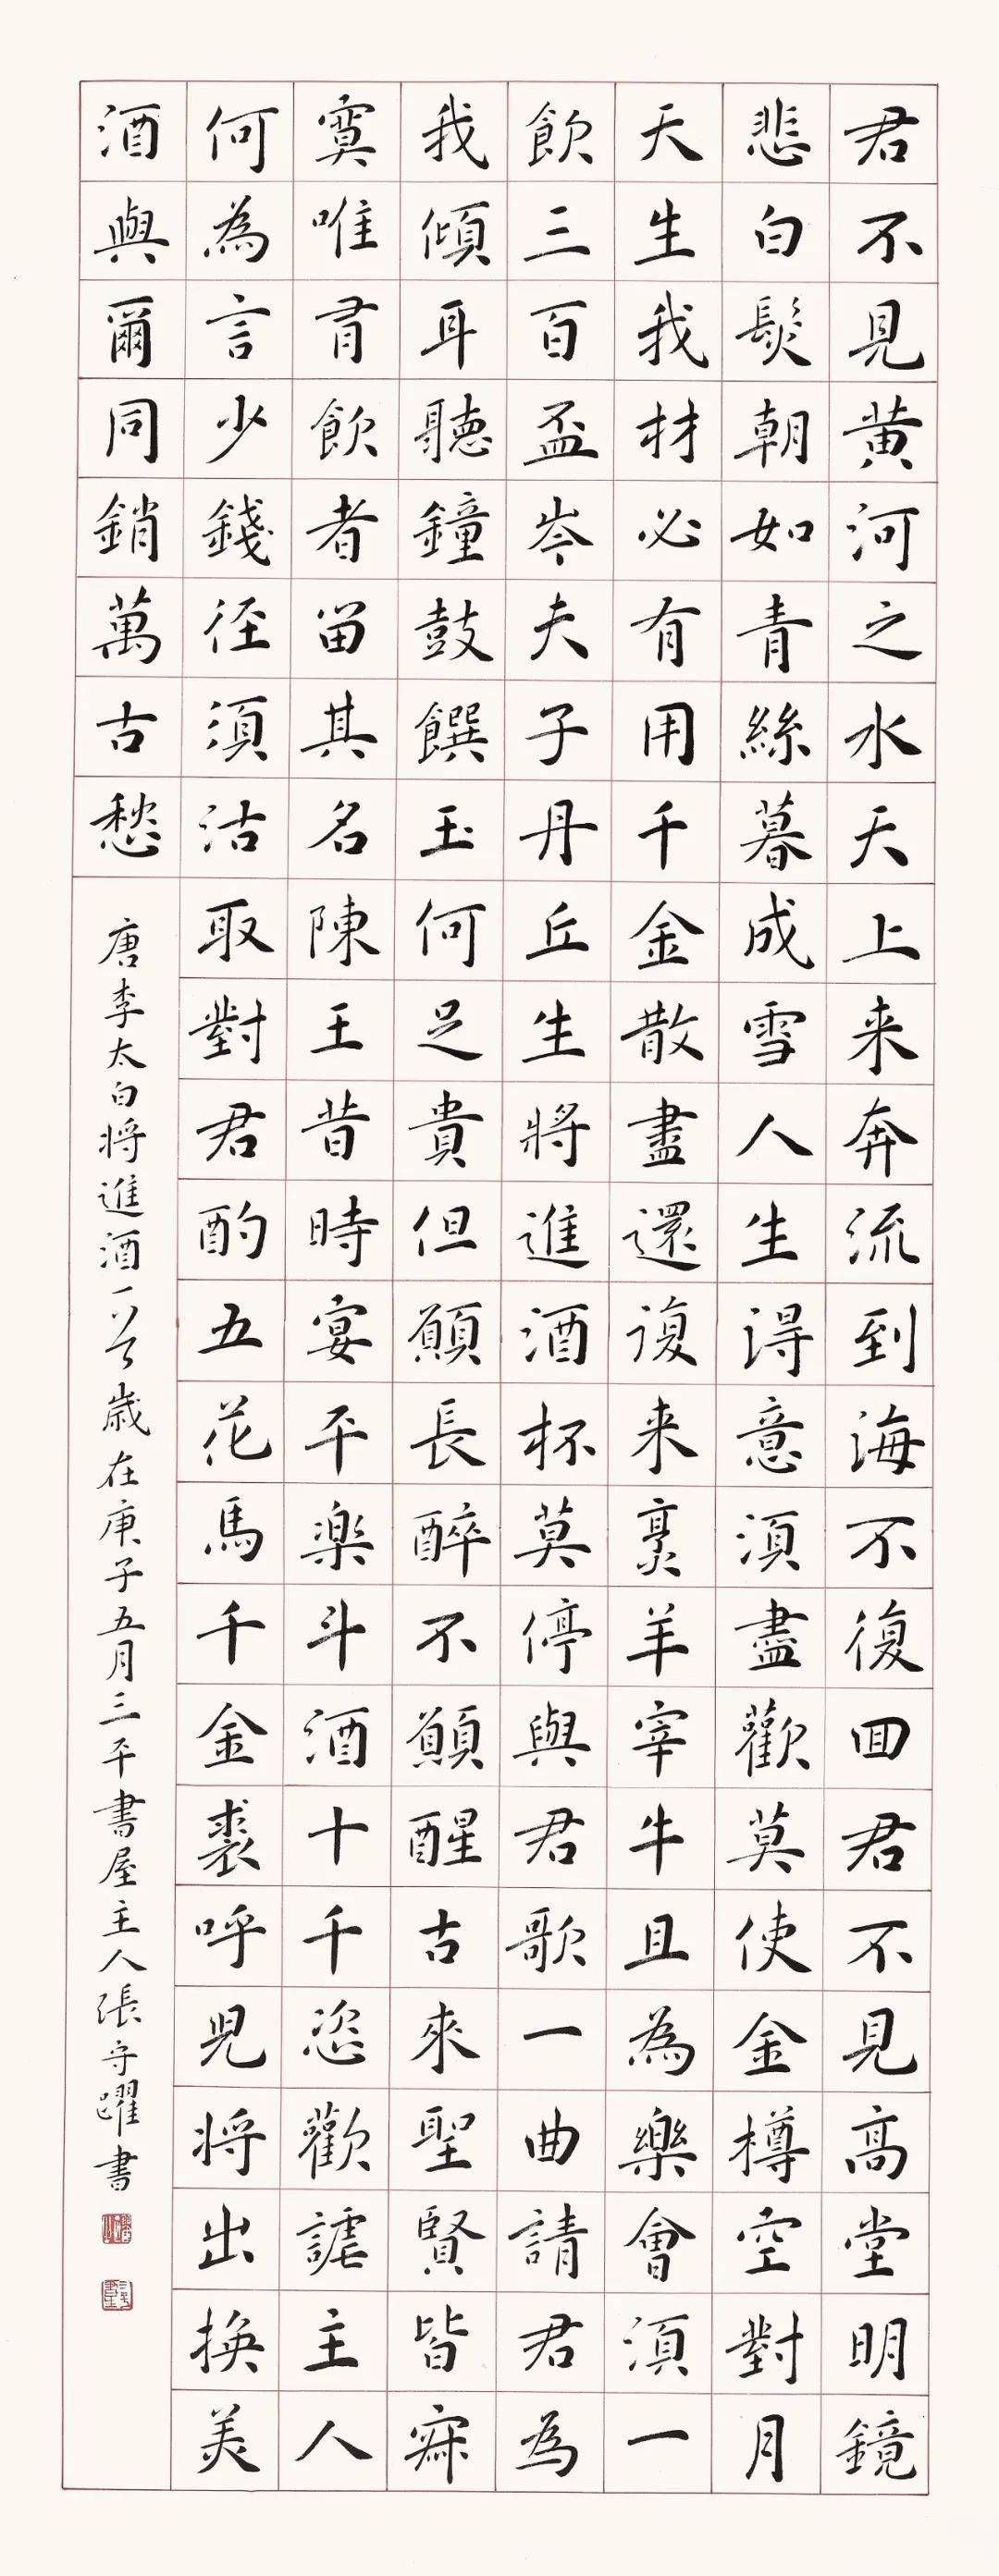 君不見黄河之水天上来奔流到海不復回君不見高堂明鏡
悲白髮朝如青絲暮成雪人生得意須盡歡莫使金樽空對月
天生我材必有用千金散盡還復来烹羊宰牛且為樂會須一
飲三百盃岑夫子丹丘生將進酒杯莫停與君歌一曲請君為
我傾耳聽鐘鼓饌玉何足貴但願長醉不願醒古來聖賢皆寂
寞唯有飲者留其名陳王昔時宴平樂斗酒十千恣歡謔主人
何為言少錢径須沽取對君酌五花馬千金裘呼兒将出換美
酒與爾同銷萬古愁
唐李太白将進酒一首歲在庚子五月三平書屋主人張守躍書